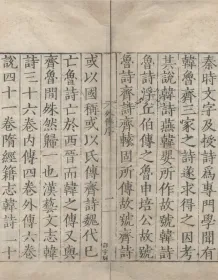 秦時文字及授詩爲專門學間有
韓魯齊三家之詩遂求得之因考
其說韓詩燕韓嬰所作故號韓詩
魯詩浮丘伯傳之魯申培公故號
魯詩齊詩轅固所傳故號齊詩
或以國稱或以氏傳齊詩魏代已
亡魯詩亡於西晉而韓之傳又與
齊魯間殊然歸一也漢藝文志韓
詩三十六卷內傳四卷外傳六卷
說四十一卷隋經籍志韓詩二十